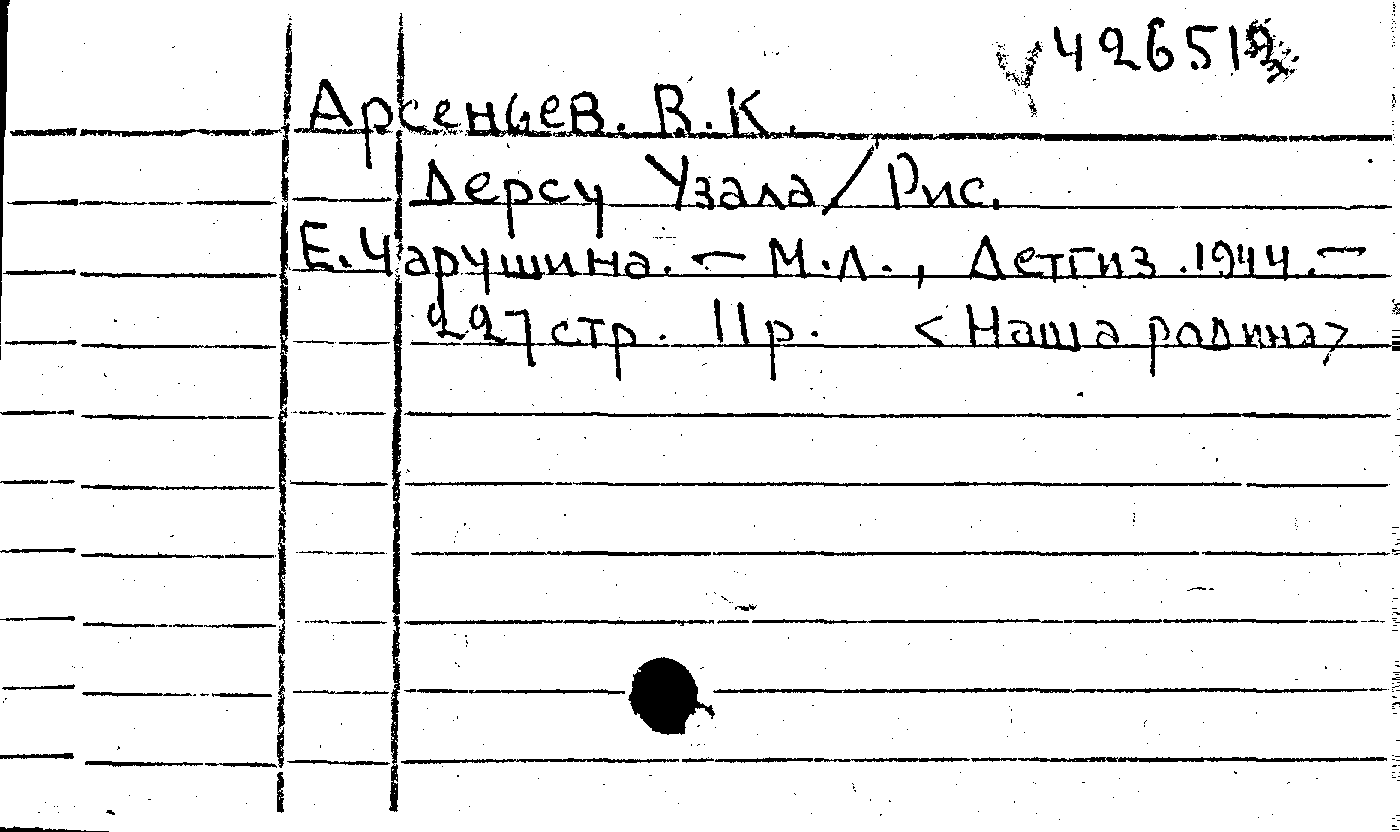 У 426512
Арсеньев. В.К.
Дерсу Узала/Рис.
Е.Чарушина. – М.Л., Детгиз.1944.–
227стр. 11р. <Наша родина>